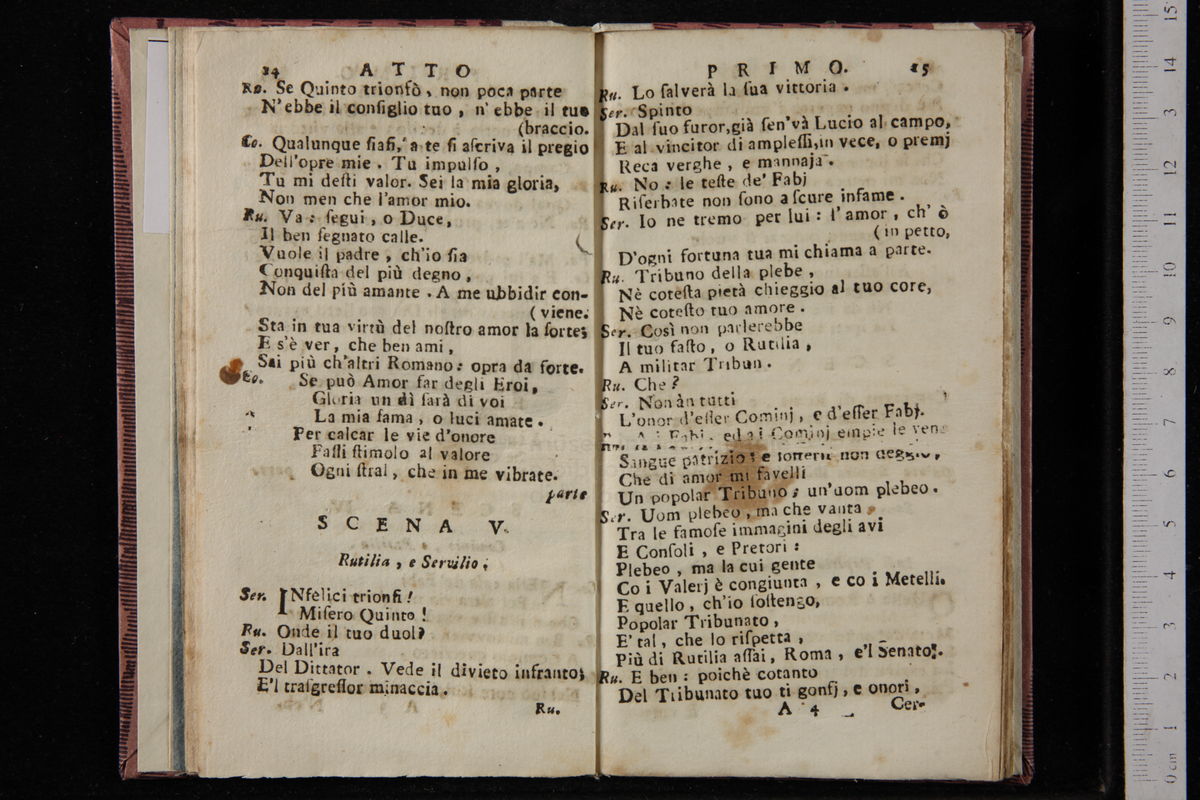 14 ATTO
Ru. Se Quinto trionfò, non poca parte
N'ebbe il configlio tuo, n'ebbe il tuo
(braccio.
Co. Qualunque ſiaſi, a te ſi aſcriva il pregio
Dell'opre mie. Tu impulſo,
Tu mi deſti valor. Sei la mia gloria,
Non men che l'amor mio.
Ru. Va: ſegui, o Duce,
Il ben ſegnato calle.
Vuole il padre, ch'io ſia
Conquiſta del più degno,
Non del più amante. A me ubbidir con-
(viene.
Sta in tua virtù del noſtro amor la ſorte;
E s'è ver, che ben ami,
Sai più ch'altri Romano: opra da forte.
Co. Se può Amor far degli Eroi,
Gloria un dì ſarà di voi
La mia fama, o luci amate.
Per calcar le vie d'onore
Faſſi ſtimolo al valore
Ogni ſtral, che in me vibrate.
parte
SCENA V.
Rutilia, e Servilio.
Ser. INfelici trionfi!
Miſero Quinto!
Ru. Onde il tuo duol?
Ser. Dall'ira
Del Dittator. Vede il divieto infranto;
E'l traſgreſſor minaccia.
Ru.
PRIMO. 15
Ru. Lo ſalverà la ſua vittoria.
Ser. Spinto
Dal ſuo furor, già ſen'và Lucio al campo,
E al vincitor di ampleſſi, in vece, o premj
Reca verghe, e mannaja.
Ru. No: le teſte de' Fabj
Riſerbate non ſono a ſcure infame.
Ser. Io ne tremo per lui: l'amor, ch' ò
(in petto,
D'ogni fortuna tua mi chiama a parte.
Ru. Tribuno della plebe,
Nè coteſta pietà chieggio al tuo core,
Nè coteſto tuo amore.
Ser. Così non parlerebbe
Il tuo faſto, o Rutilia,
A militar Tribun.
Ru. Che?
Ser. Non àn tutti
L'onor d'eſſer Cominj, e d'eſſer Fabj.
Ai Fabj, ed ai Cominj empie le vene
Sangue patrizio: e ſofferir non deggio,
Che di amor mi favelli
Un popolar Tribuno; un'uom plebeo.
Ser. Uom plebeo, ma che vanta
Tra le famoſe immagini degli avi
E Conſoli, e Pretori:
Plebeo, ma la cui gente
Co i Valerj è congiunta, e co i Metelli.
E quello, ch'io ſoſtengo,
Popolar Tribunato,
E' tal, che lo riſpetta,
Più di Rutilia aſſai, Roma, e'l Senato.
Ru. E ben: poichè cotanto
Del Tribunato tuo ti gonfj, e onori,
A 4 Cer-